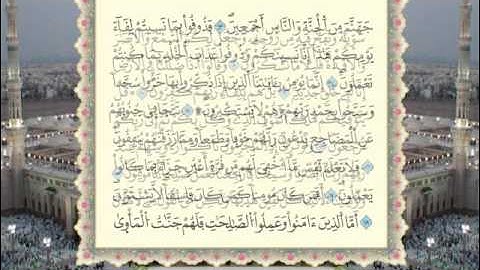 جَهَنَّمَ مِنَ ٱلْجِنَّةِ وَٱلنَّاسِ أَجْمَعِينَ ١٣ فَذُوقُوا۟ بِمَا نَسِيتُمْ لِقَآءَ
يَوْمِكُمْ هَٰذَآ إِنَّا نَسِينَٰكُمْ وَذُوقُوا۟ عَذَابَ ٱلْخُلْدِ بِمَا كُنتُمْ
تَعْمَلُونَ ١٤ إِنَّمَا يُؤْمِنُ بِـَٔايَٰتِنَا ٱلَّذِينَ إِذَا ذُكِّرُوا۟ بِهَا خَرُّوا۟ سُجَّدًا
وَسَبَّحُوا۟ بِحَمْدِ رَبِّهِمْ وَهُمْ لَا يَسْتَكْبِرُونَ ١٥ تَتَجَافَىٰ جُنُوبُهُمْ
عَنِ ٱلْمَضَاجِعِ يَدْعُونَ رَبَّهُمْ خَوْفًا وَطَمَعًا وَمِمَّا رَزَقْنَٰهُمْ يُنفِقُونَ
١٦ فَلَا تَعْلَمُ نَفْسٌ مَّآ أُخْفِىَ لَهُم مِّن قُرَّةِ أَعْيُنٍ جَزَآءًۢ بِمَا كَانُوا۟
يَعْمَلُونَ ١٧ أَفَمَن كَانَ مُؤْمِنًا كَمَن كَانَ فَاسِقًا لَّا يَسْتَوُۥنَ
١٨ أَمَّا ٱلَّذِينَ ءَامَنُوا۟ وَعَمِلُوا۟ ٱلصَّٰلِحَٰتِ فَلَهُمْ جَنَّٰتُ ٱلْمَأْوَىٰ